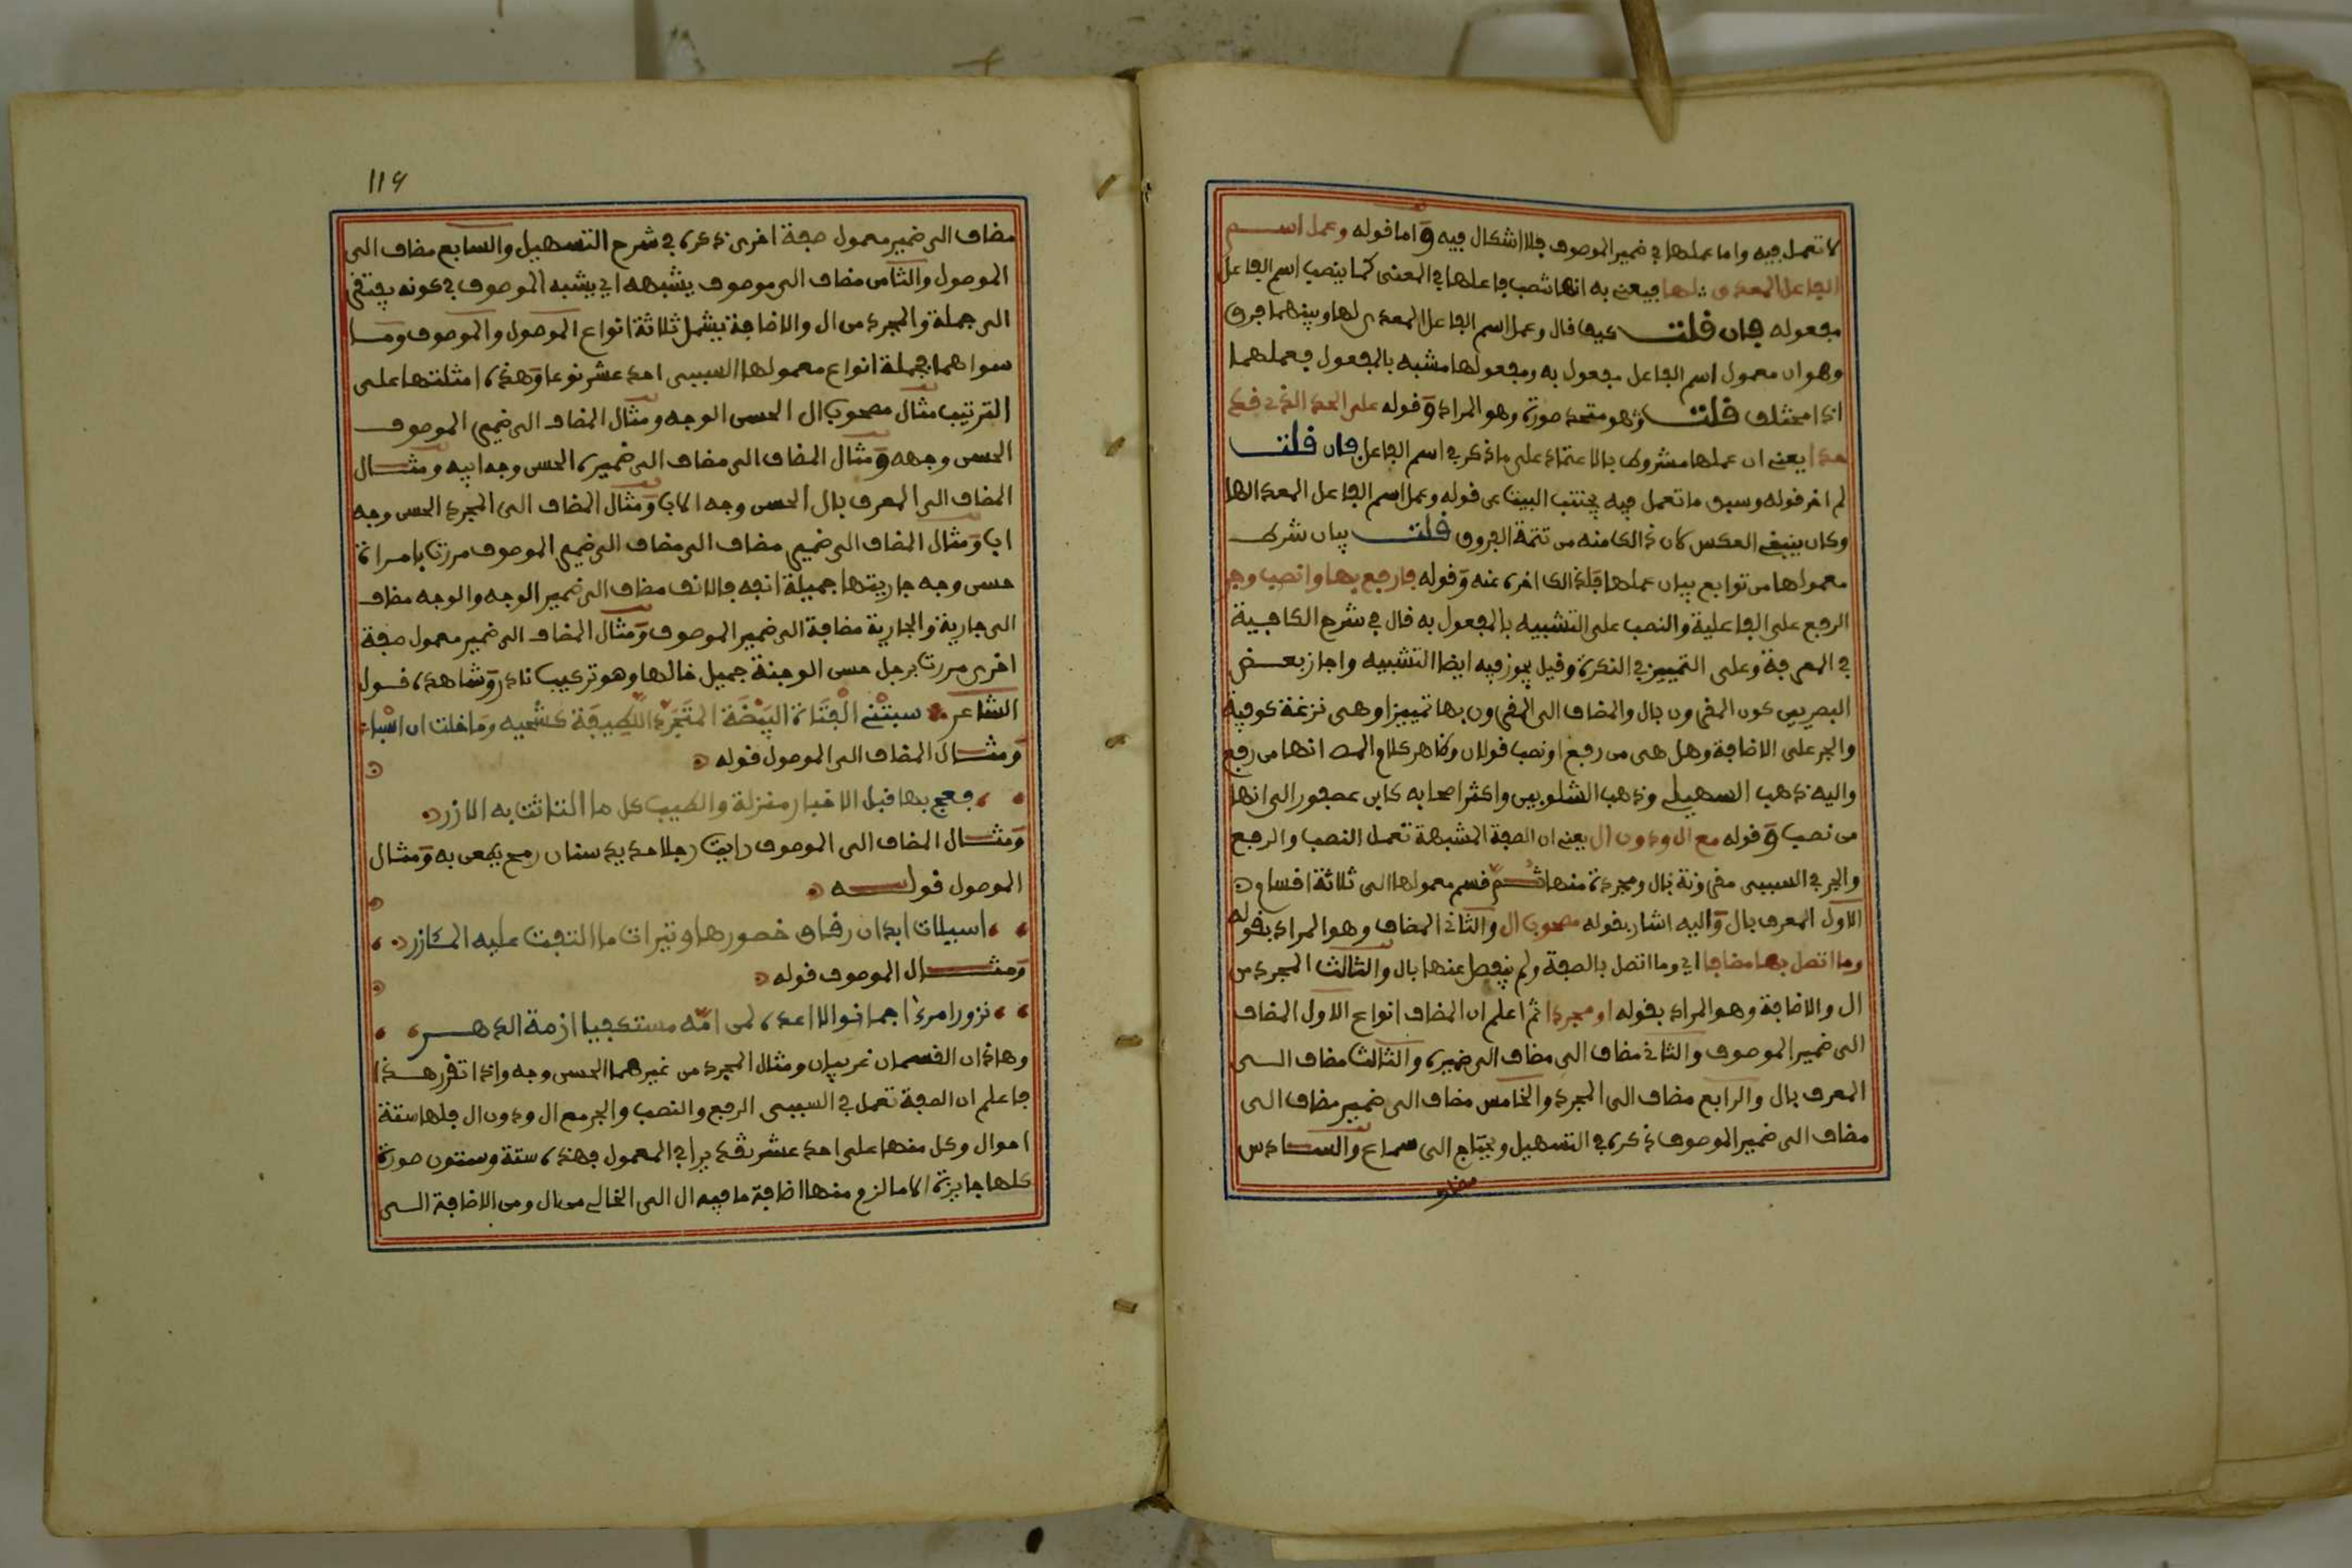 لا تعمل فيه واما عملها في ضمير الموصوف فلا اشكال فيه واما قوله وعمل اسم
الفاعل المعدى لها فيعني به انها تنصب فاعلها في المعنى كما ينصب اسم الفاعل
مفعوله فان قلت كيف قال وعمل اسم الفاعل المعدى لها وبينهما فرق
وهو ان معمول اسم الفاعل مفعول به ومفعولها مشبه بالمفعول فعملهما
اذا مختلف قلت وهو متحد صورة وهو المراد وقوله على الحد الذي قد
حدا يعني ان عملها مشروط بالاعتماد على ما ذكر في اسم الفاعل فان قلت
لم اخر قوله وسبق ما تعمل فيه يجتنب البيت عن قوله وعمل اسم الفاعل المعدا لها
وكان ينبغي العكس لان ذالك منه من تتمة الفروق قلت بيان شرط
معمولها من توابع بيان عملها فلذالك اخره عنه وقوله فارفع بها وانصب وجر
الرفع على الفاعلية والنصب على التشبيه بالمفعول به قال في شرح الكافية
في المعرفة وعلى التمييز في النكرة وقيل يجوز فيه ايضا التشبيه واجاز بعض
البصريين كون المقرون بال والمضاف الى المقرون بها تمييزا وهي نزغة كوفية
والجر على الاضافة وهل هي من رفع او نصب قولان وظاهر كلام المص انها من رفع
واليه ذهب السهيلي وذهب الشلوبين واكثر اصحابه كابن عصفور الى انها
من نصب وقوله مع ال ودون ال يعني ان الصفة المشبهة تعمل النصب والرفع
والجر في السببي مقرونة بال ومجردة منها ثم قسم معمولها الى ثلاثة اقسام
الاول المعرف بال واليه اشار بقوله مصحوب ال والثاني المضاف وهو المراد بقوله
وما اتصل بها مضافا اي وما اتصل بالصفة ولم ينفصل عنها بال والثالث المجرد من
ال والاضافة وهو المراد بقوله او مجردا ثم اعلم ان المضاف انواع الاول المضاف
الى ضمير الموصوف والثاني مضاف الى مضاف الى ضميره والثالث مضاف الى
المعرف بال والرابع مضاف الى المجرد والخامس مضاف الى ضمير مضاف الى
مضاف الى ضمير الموصوف ذكره في التسهيل ويحتاج الى سماع والسادس
مضاف
116
مضاف الى ضمير معمول صفة اخرى ذكره في شرح التسهيل والسابع مضاف الى
الموصول والثامن مضاف الى موصوف يشبهه اي يشبه الموصوف في كونه يفتقر
الى جملة والمجرد من ال والاضافة يشمل ثلاثة انواع الموصول والموصوف وما
سواهما فجملة انواع معمولها السببي احد عشر نوعا وهذه امثلتها على
الترتيب مثال مصحوب ال الحسن الوجه ومثال المضاف الى ضمير الموصوف
الحسن وجهه ومثال المضاف الى مضاف الى ضميره الحسن وجه ابيه ومثال
المضاف الى المعرف بال الحسن وجه الاب ومثال المضاف الى المجرد الحسن وجه
اب ومثال المضاف الى ضمير مضاف الى مضاف الى ضمير الموصوف مررت بامراة
حسن وجه جاريتها جميلة انفه فالانف مضاف الى ضمير الوجه والوجه مضاف
الى جارية والجارية مضافة الى ضمير الموصوف ومثال المضاف الى ضمير معمول صفة
اخرى مررت برجل حسن الوجنة جميل خالها وهو تركيب نادر وشاهده قول
الشاعر سبتني الفتاة البضة المتجرد اللطيفة كشحيه وما خلت ان اسباء
ومثال المضاف الى الموصول قوله
فعج بها قبل الاخيار منزلة والطيب كل ما التاثت به الازر
ومثال المضاف الى الموصوف رايت رجلا حديد سنان رمح يطعن به ومثال
الموصول قوله
اسيلات ابدان رقاق خصورها وثيرات ما التفت عليه المئازر
ومثال الموصوف قوله
نزور امرءا جما نوالا اعده لمن امه مستكفيا ازمة الدهر
وهاذان القسمان غريبان ومثال المجرد من غيرهما الحسن وجه واذا تقرر هذا
فاعلم ان الصفة تعمل في السببي الرفع والنصب والجر مع ال ودون ال فلها ستة
احوال وكل منها على احد عشر تقديرا في المعمول فهذه ستة وستون صورة
كلها جايزة الا ما لزم منها اضافة ما فيه ال الى الخالي من ال ومن الاضافة الى